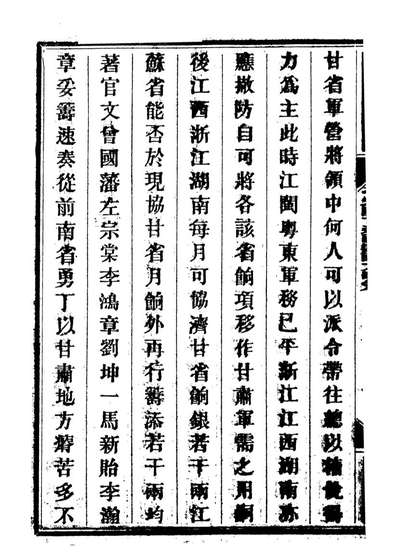 甘省軍營將領中何人可以派令帶往總以
力爲主此時江閩粵東軍務已平浙江江西湖南亦
應撤防自可將各該省餉項移作甘肅軍需之用嗣
後江西浙江湖南每月可協濟甘省餉銀若干兩江
蘇省能否於現協甘省月餉外再行籌添若干兩均
著官文曾國藩左宗棠李鴻章劉坤一馬新貽李瀚
章妥籌速奏從前南省勇丁以甘肅地方瘠苦多不